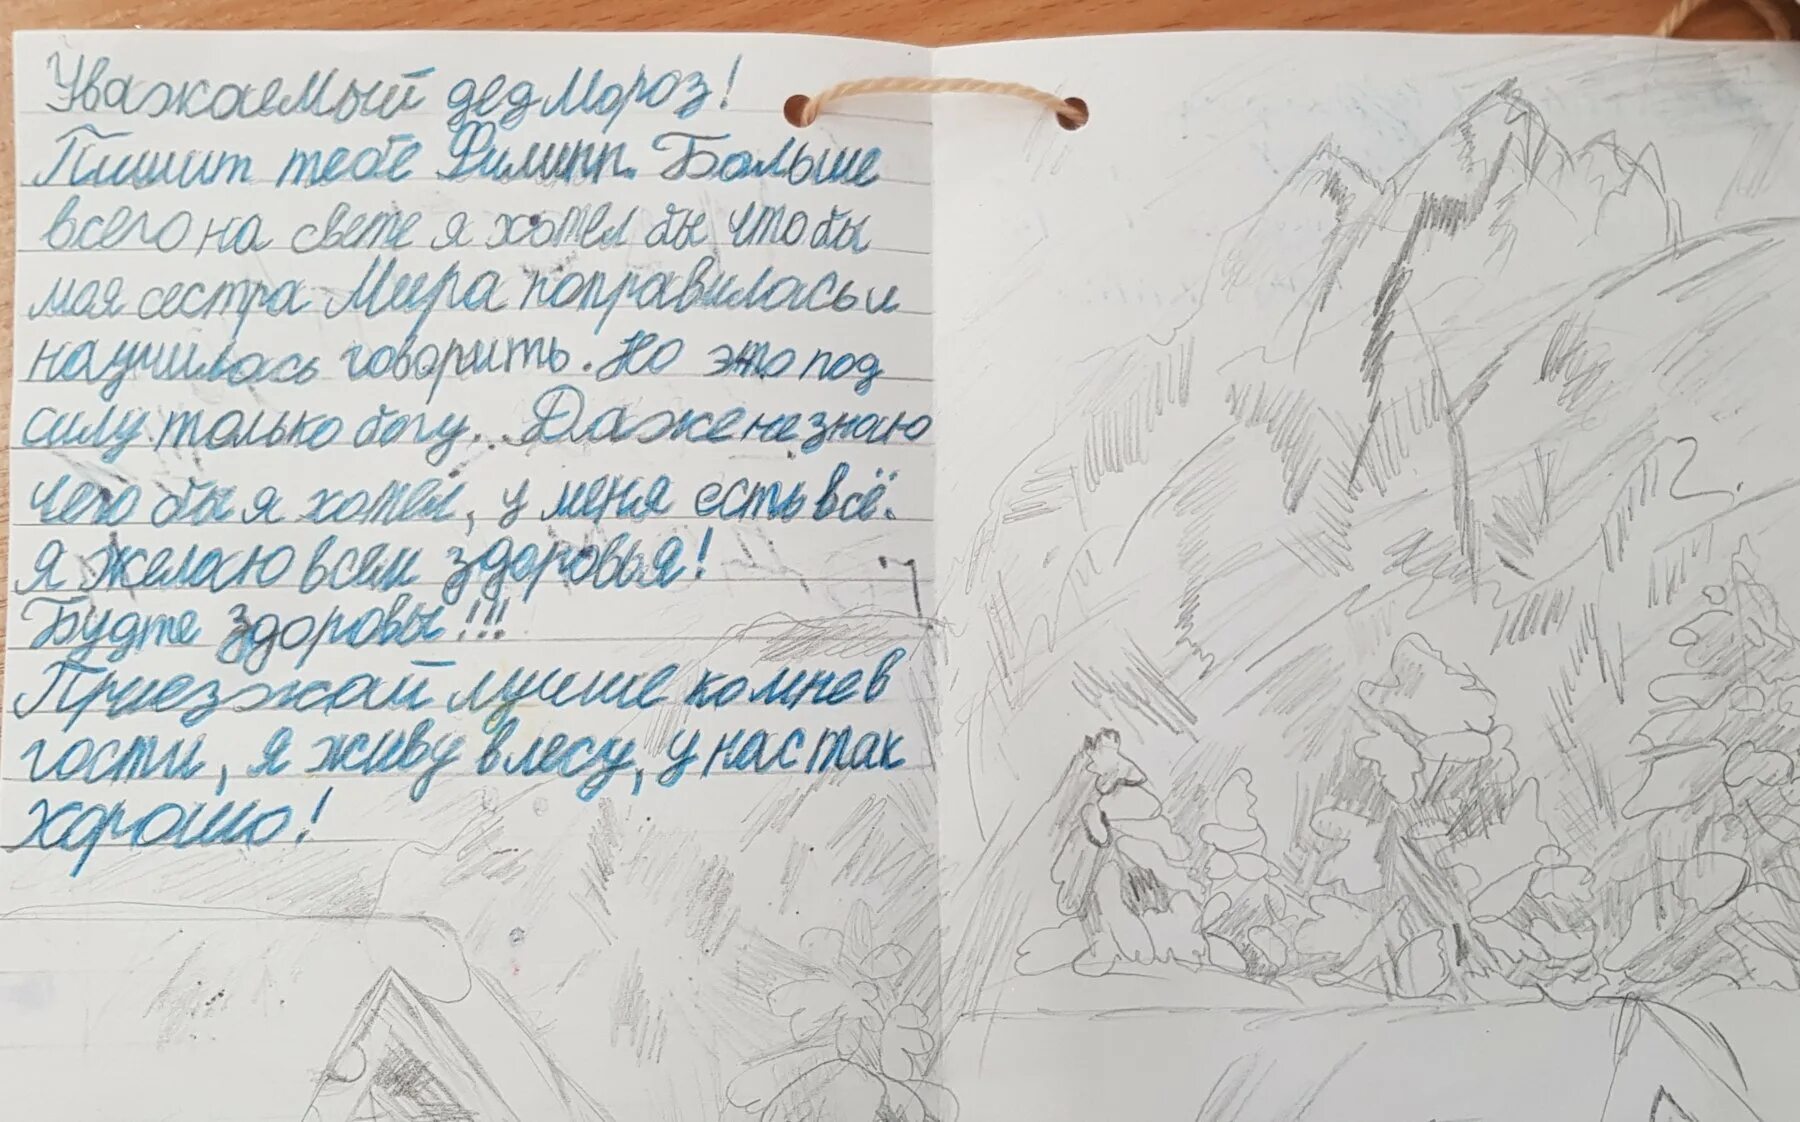 Уважаемый дед Мороз!
Пишит тебе Филипп. Больше
всего на свете я хотел бы что бы
моя сестра Мира поправилась и
научилась говорить. Но это под
силу только богу. Даже не знаю
чего бы я хотел, у меня есть всё.
я желаю всем здоровья!
Будте здоровы!!!
Приезжай лучше ко мне в
гости, я живу в лесу, у нас так
хорошо!